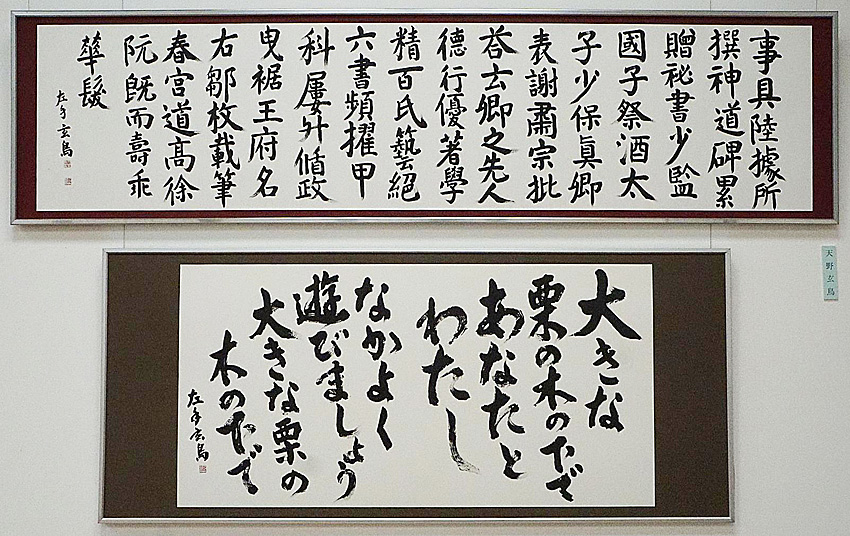 事具陸據所
撰神道碑累
贈祕書少監
國子祭酒太
子少保眞卿
表謝肅宗批
荅云卿之先人
德行優著學
精百氏藝絕
六書頻擢甲
科屢升循政
曳裾王府名
右鄒枚載筆
春宮道高徐
阮旣而壽乖
華髮
左手玄鳥
大きな
栗の木の下で
あなたと
わたし
なかよく
遊びましょう
大きな栗の
木の下で
左手玄鳥
天野玄鳥